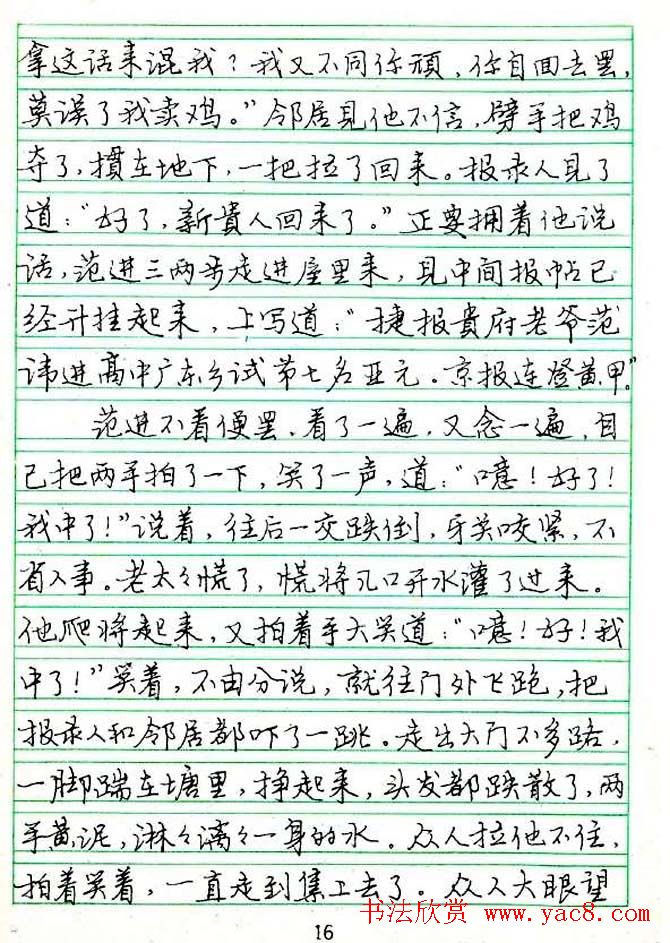 拿这话来混我？我又不同你顽，你自回去罢，
莫误了我卖鸡。”邻居见他不信，劈手把鸡
夺了，掼在地下，一把拉了回来。报录人见了
道：“好了，新貴人回来了。”正要拥着他说
话，范进三两步走进屋里来，見中间报帖已
经升挂起来，上写道：“捷报貴府老爷范
讳进高中广东乡试第七名亚元。京报连登黄甲。”
范进不看便罢，看了一遍，又念一遍，自
己把两手拍了一下，笑了一声，道：“噫！好了！
我中了！”说着，往后一交跌倒，牙关咬紧，不
省人事。老太々慌了，慌将几口开水灌了过来。
他爬将起来，又拍着手大笑道：“噫！好！我
中了！”笑着，不由分说，就往门外飞跑，把
报录人和邻居都吓了一跳。走出大门不多路，
一脚踹在塘里，挣起来，头发都跌散了，两
手黄泥，淋々漓々一身的水。众人拉他不住，
拍着笑着，一直走到集上去了。众人大眼望
16
书法欣赏 www.yac8.com